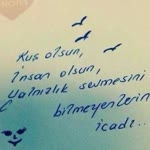 Kuş olsun,
insan olsun,
Yalnızlık sevmesini
bilmeyenlerin
icadı..